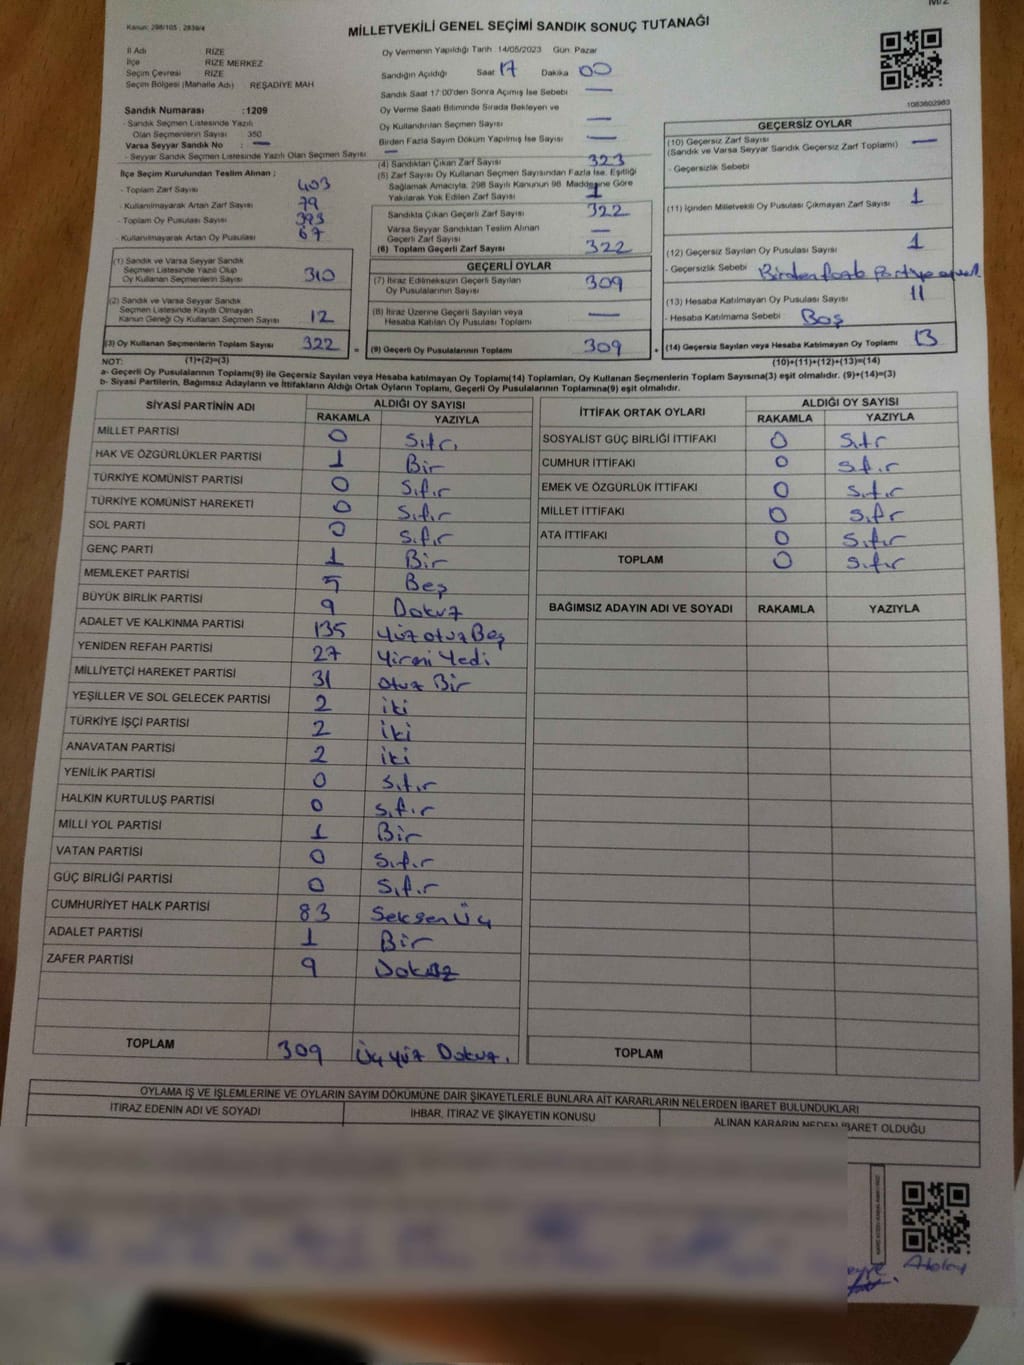 M/2
Kanun: 298/105 , 2839/4
MİLLETVEKİLİ GENEL SEÇİMİ SANDIK SONUÇ TUTANAĞI
İl Adı RİZE
İlçe RİZE MERKEZ
Seçim Çevresi RİZE
Seçim Bölgesi (Mahalle Adı) REŞADİYE MAH
Sandık Numarası : 1209
- Sandık Seçmen Listesinde Yazılı
Olan Seçmenlerin Sayısı 350
Varsa Seyyar Sandık No : —
- Seyyar Sandık Seçmen Listesinde Yazılı Olan Seçmen Sayısı —
İlçe Seçim Kurulundan Teslim Alınan ;
- Toplam Zarf Sayısı 403
- Kullanılmayarak Artan Zarf Sayısı 79
- Toplam Oy Pusulası Sayısı 393
- Kullanılmayarak Artan Oy Pusulası 67
(1) Sandık ve Varsa Seyyar Sandık
Seçmen Listesinde Yazılı Olup
Oy Kullanan Seçmenlerin Sayısı 310
(2) Sandık ve Varsa Seyyar Sandık
Seçmen Listesinde Kayıtlı Olmayan
Kanun Gereği Oy Kullanan Seçmen Sayısı 12
(3) Oy Kullanan Seçmenlerin Toplam Sayısı 322
Oy Vermenin Yapıldığı Tarih 14/05/2023 Gün: Pazar
Sandığın Açıldığı Saat 17 Dakika 00
Sandık Saat 17:00'den Sonra Açımış İse Sebebi —
Oy Verme Saati Bitiminde Sırada Bekleyen ve
Oy Kullandırılan Seçmen Sayısı —
Birden Fazla Sayım Döküm Yapılmış İse Sayısı —
(4) Sandıktan Çıkan Zarf Sayısı 323
(5) Zarf Sayısı Oy Kullanan Seçmen Sayısından Fazla İse, Eşitliği
Sağlamak Amacıyla, 298 Sayılı Kanunun 98. Maddesine Göre
Yakılarak Yok Edilen Zarf Sayısı 1
Sandıkta Çıkan Geçerli Zarf Sayısı 322
Varsa Seyyar Sandıktan Teslim Alınan
Geçerli Zarf Sayısı —
(6) Toplam Geçerli Zarf Sayısı 322
GEÇERLİ OYLAR
(7) İtiraz Edilmeksizin Geçerli Sayılan
Oy Pusulalarının Sayısı 309
(8) İtiraz Üzerine Geçerli Sayılan veya
Hesaba Katılan Oy Pusulası Toplamı —
= (9) Geçerli Oy Pusulalarının Toplamı 309
1083602983
GEÇERSİZ OYLAR
(10) Geçersiz Zarf Sayısı
(Sandık ve Varsa Seyyar Sandık Geçersiz Zarf Toplamı) —
- Geçersizlik Sebebi
(11) İçinden Milletvekili Oy Pusulası Çıkmayan Zarf Sayısı 1
(12) Geçersiz Sayılan Oy Pusulası Sayısı 1
- Geçersizlik Sebebi Birden fazla Partiye
(13) Hesaba Katılmayan Oy Pusulası Sayısı 11
- Hesaba Katılmama Sebebi Boş
+ (14) Geçersiz Sayılan veya Hesaba Katılmayan Oy Toplamı 13
NOT: (1)+(2)=(3) (10)+(11)+(12)+(13)=(14)
a- Geçerli Oy Pusulalarının Toplamı(9) ile Geçersiz Sayılan veya Hesaba katılmayan Oy Toplamı(14) Toplamları, Oy Kullanan Seçmenlerin Toplam Sayısına(3) eşit olmalıdır. (9)+(14)=(3)
b- Siyasi Partilerin, Bağımsız Adayların ve İttifakların Aldığı Ortak Oyların Toplamı, Geçerli Oy Pusulalarının Toplamına(9) eşit olmalıdır.
SİYASİ PARTİNİN ADI ALDIĞI OY SAYISI
RAKAMLA YAZIYLA
MİLLET PARTİSİ 0 Sıfır
HAK VE ÖZGÜRLÜKLER PARTİSİ 1 Bir
TÜRKİYE KOMÜNİST PARTİSİ 0 Sıfır
TÜRKİYE KOMÜNİST HAREKETİ 0 Sıfır
SOL PARTİ 0 Sıfır
GENÇ PARTİ 1 Bir
MEMLEKET PARTİSİ 5 Beş
BÜYÜK BİRLİK PARTİSİ 9 Dokuz
ADALET VE KALKINMA PARTİSİ 135 Yüz otuz Beş
YENİDEN REFAH PARTİSİ 27 Yirmi Yedi
MİLLİYETÇİ HAREKET PARTİSİ 31 otuz Bir
YEŞİLLER VE SOL GELECEK PARTİSİ 2 iki
TÜRKİYE İŞÇİ PARTİSİ 2 iki
ANAVATAN PARTİSİ 2 iki
YENİLİK PARTİSİ 0 Sıfır
HALKIN KURTULUŞ PARTİSİ 0 Sıfır
MİLLİ YOL PARTİSİ 1 Bir
VATAN PARTİSİ 0 Sıfır
GÜÇ BİRLİĞİ PARTİSİ 0 Sıfır
CUMHURİYET HALK PARTİSİ 83 Seksen Üç
ADALET PARTİSİ 1 Bir
ZAFER PARTİSİ 9 Dokuz
TOPLAM 309 Üç yüz Dokuz.
İTTİFAK ORTAK OYLARI ALDIĞI OY SAYISI
RAKAMLA YAZIYLA
SOSYALİST GÜÇ BİRLİĞİ İTTİFAKI 0 Sıfır
CUMHUR İTTİFAKI 0 Sıfır
EMEK VE ÖZGÜRLÜK İTTİFAKI 0 Sıfır
MİLLET İTTİFAKI 0 Sıfır
ATA İTTİFAKI 0 Sıfır
TOPLAM 0 Sıfır
BAĞIMSIZ ADAYIN ADI VE SOYADI RAKAMLA YAZIYLA
TOPLAM
OYLAMA İŞ VE İŞLEMLERİNE VE OYLARIN SAYIM DÖKÜMÜNE DAİR ŞİKAYETLERLE BUNLARA AİT KARARLARIN NELERDEN İBARET BULUNDUKLARI
İTİRAZ EDENİN ADI VE SOYADI İHBAR, İTİRAZ VE ŞİKAYETİN KONUSU ALINAN KARARIN NEDEN İBARET OLDUĞU